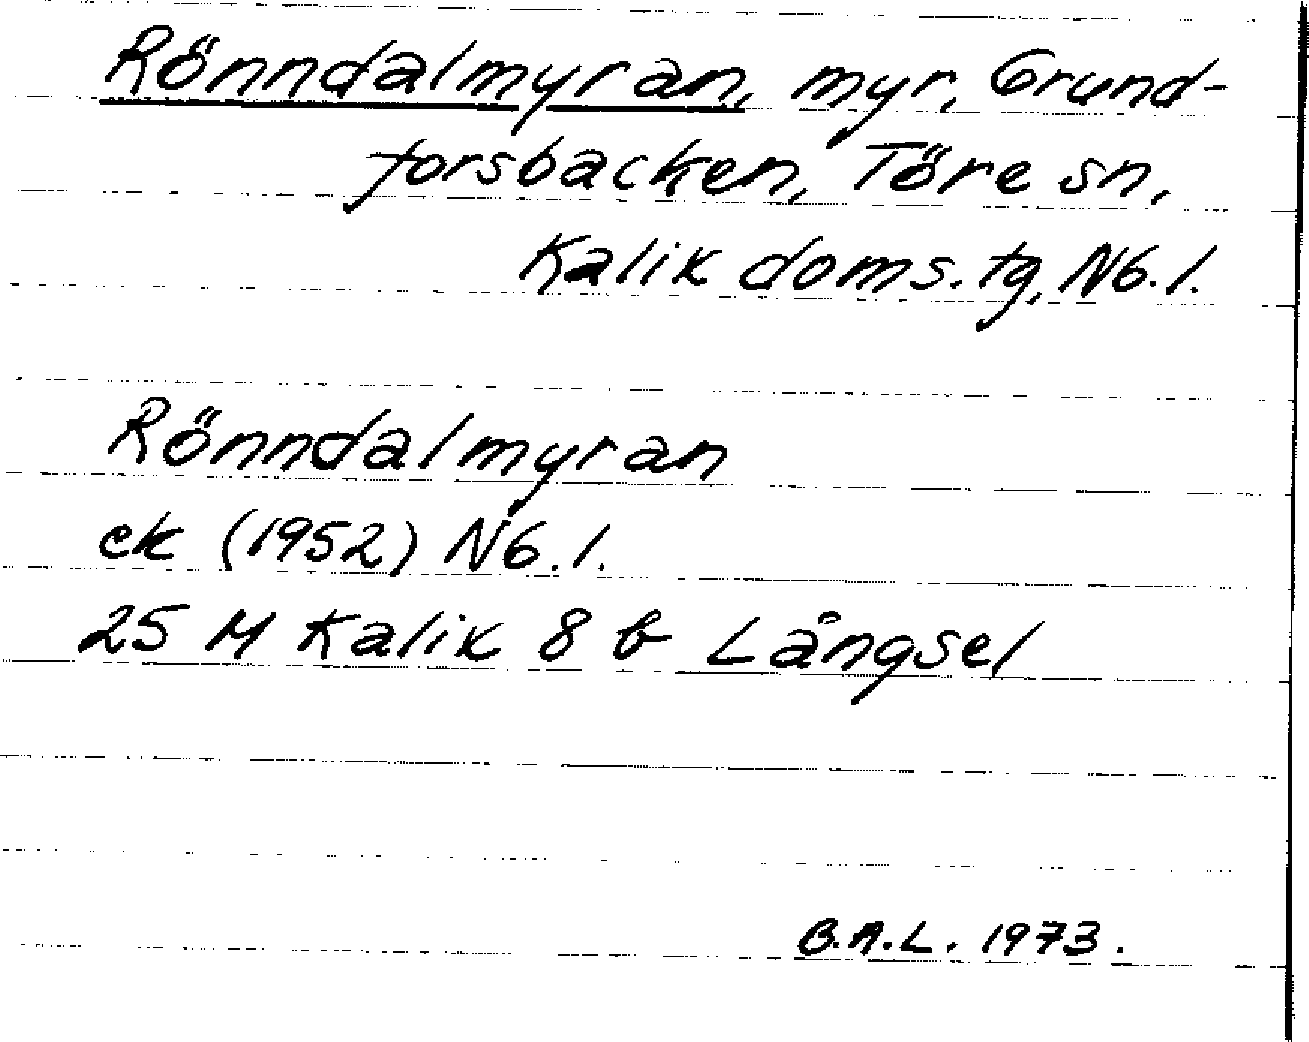 Rönndalmyran, myr, Grund-
forsbacken, Töre sn,
Kalix doms. tg, Nb. l.
Rönndalmyran
ek (1952) Nb. l.
25 M Kalix 8 b Långsel
B.A.L. 1973.